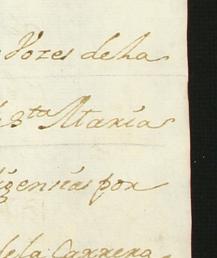 Vozes de la
Sta Maria
ligencias por
de la Carrera